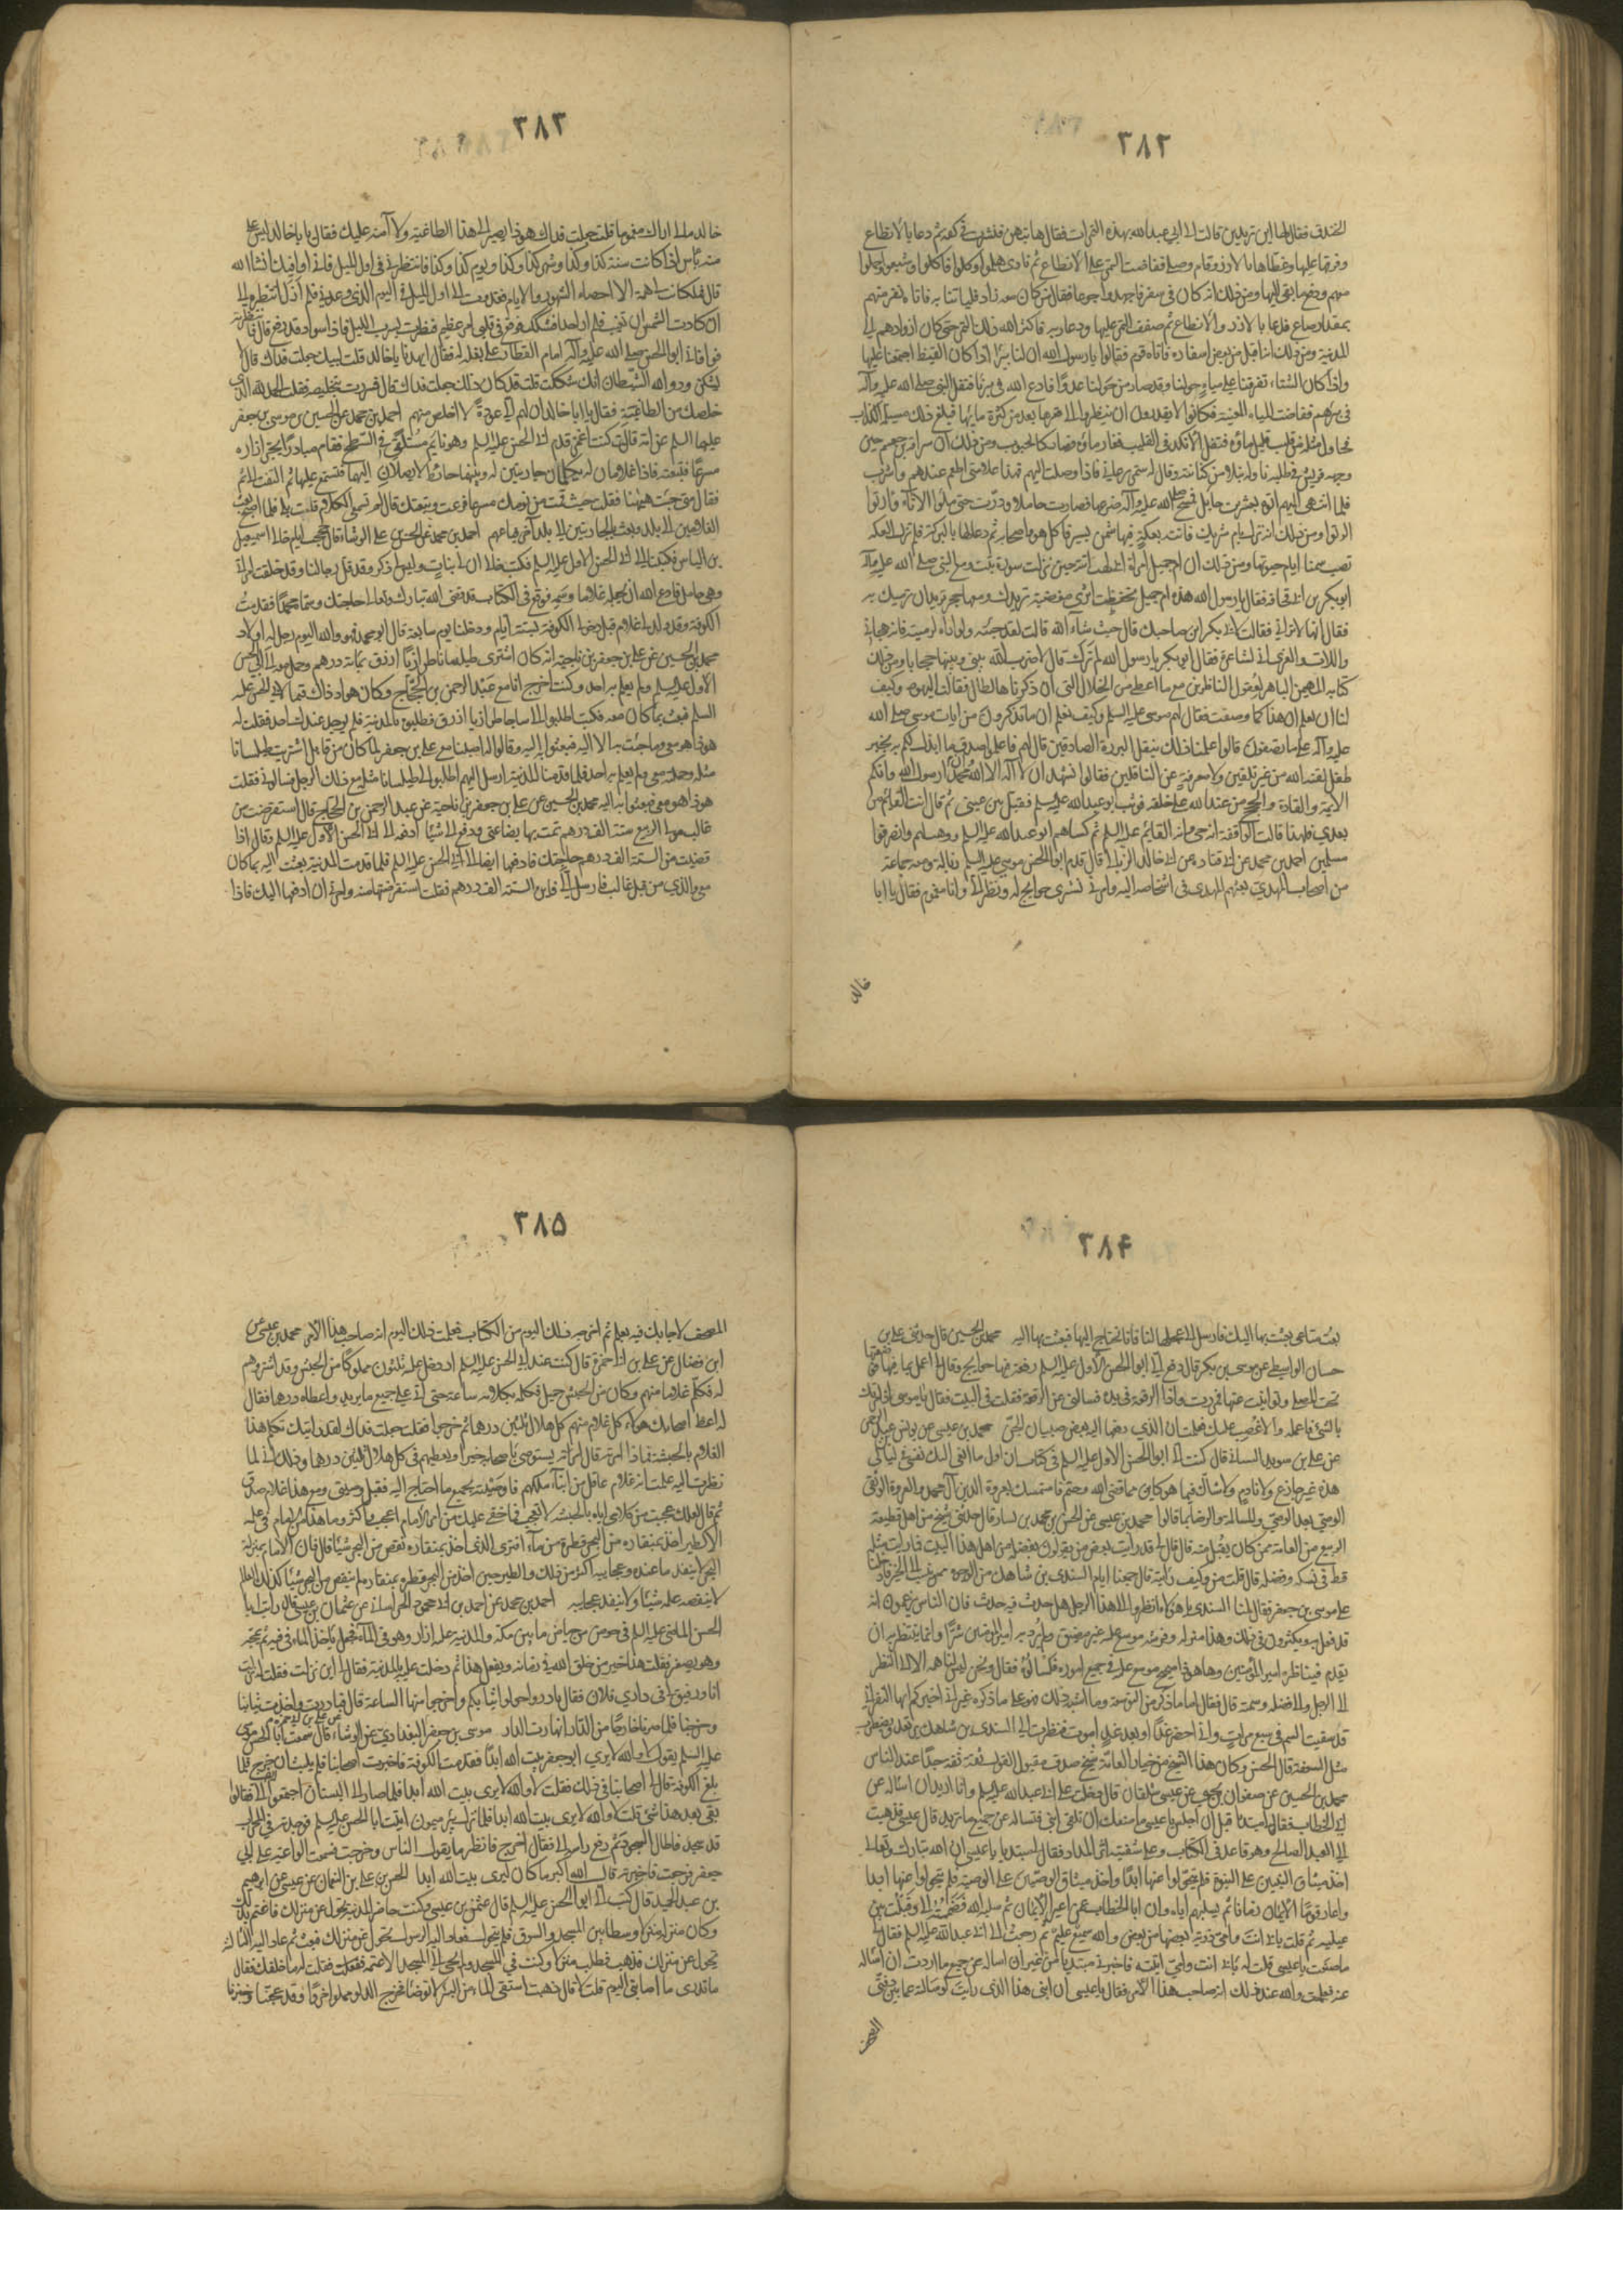 ٣٨٢
الخندق فقال لها اين تريدين قالت الى ابي عبد الله بهذه التمرات فقال هاتيهن فنثرت في كفه ثم دعا بالانطاع
وفرقها عليها وغطاها بالازر وقام وصلى ففاضت التمر على الانطاع ثم نادى هلموا وكلوا فاكلوا وشبعوا وحملوا
معهم ودفع ما بقي اليها ومن ذلك انه كان في سفر فاجهدوا جوعا فقال من كان معه زاد فلياتنا به فاتاه نفر منهم
بمقدار صاع فدعا بالازر والانطاع ثم صفف التمر عليها ودعا ربه فاكثر الله ذلك التمر حتى كان ازوادهم الى
المدينة ومن ذلك انه اقبل من بعض اسفاره فاتاه قوم فقالوا يا رسول الله ان لنا بئرا اذا كان القيظ اجتمعنا عليها
واذا كان الشتاء تفرقنا على مياه حولنا وقد صار من حولنا عدوا فادع الله في بئرنا فتفل النبي صلى الله عليه وآله
في بئرهم ففاضت المياه المغيبة فكانوا لا يقدرون ان ينظروا الى قعرها بعد من كثرة مائها فبلغ ذلك مسيلمة الكذاب
فحاول مثله من قليب قليل ماؤه فتفل الانكد في القليب فغار ماؤه وصار كالجبوب ومن ذلك ان سراقة بن جعشم حين
وجهه قريش في طلبه ناوله نبلا من كنانته وقال له ستمر برعاتي فاذا وصلت اليهم فهذا علامتي اطعم عندهم واشرب
فلما انتهى اليهم اتوه بعنز حايل فمسح صلى الله عليه وآله ضرعها فصارت حاملا ودرت حتى ملؤا الاناء وارتووا
ارتواء ومن ذلك انه نزل بام شريك فاتته بعكة فيها سمن يسير فاكل هو واصحابه ثم دعا لها بالبركة فلم تزل العكة
تصب سمنا ايام حيوتها ومن ذلك ان ام جميل امراة ابي لهب اتته حين نزلت سورة تبت ومع النبي صلى الله عليه وآله
ابو بكر بن ابي قحافة فقال يا رسول الله هذه ام جميل محفظة اي مغضبة تريدك ومعها حجر تريد ان ترميك به
فقال انها لا تراني فقالت لابي بكر اين صاحبك قال حيث شاء الله قالت لقد جئته ولو اراه لرميته فانه هجاني
واللات والعزى اني لشاعرة فقال ابو بكر يا رسول الله لم ترك قال لا ضرب الله بيني وبينها حجابا ومن ذلك
كتابه المهيمن الباهر لعقول الناظرين مع ما اعطي من الخلال التي ان ذكرناها لطالت فقالت اليهود وكيف
لنا ان نعلم ان هذا كما وصفت فقال لهم موسى عليه السلم وكيف لنا ان نعلم ان ما تذكرون من ايات موسى صلى الله
عليه وآله على ما تصفون قالوا علمنا ذلك بنقل البررة الصادقين قال لهم فاعلموا صدق ما انباتكم به بخبر
طفل لقنه الله من غير تلقين ولا معرفة عن الناقلين فقالوا نشهد ان لا اله الا الله وان محمدا رسول الله وانكم
الائمة والقادة والحجج من عند الله على خلقه فوثب ابو عبد الله عليه السلم فقبل بين عيني ثم قال انت القائم من
بعدي فلهذا قالت الواقفة انه حي وانه القائم عليه السلم ثم كساهم ابو عبد الله عليه السلم ووهب لهم وانصرفوا
مسلمين احمد بن محمد عن ابي قتادة عن ابي خالد الزبالي قال قدم ابو الحسن موسى عليه السلم زبالة ومعه جماعة
من اصحاب المهدي بعثهم المهدي في اشخاصه اليه وامرني بشرى حوايج له ونظر الي وانا مغموم فقال يا ابا
خالد
٣٨٣
خالد ما لي اراك مغموما قلت جعلت فداك هوذا تصير الى هذا الطاغية ولا آمنه عليك فقال يا ابا خالد ليس علي
منه بأس اذا كانت سنة كذا وكذا وشهر كذا وكذا ويوم كذا وكذا فانتظرني في اول الليل فاني اوافيك انشاء الله
قال فما كانت لي همة الا احصاء الشهور والايام فغدوت الى اول الليل في اليوم الذي وعدني فلم ازل انتظره الى
ان كادت الشمس ان تغيب فلم ار احدا فشككت فوقع في قلبي امر عظيم فنظرت قرب الليل فاذا سواد قد رفع قال فانتظرته
فوافاني ابو الحسن صلى الله عليه وآله امام القطار على بغلة له فقال ايه يا با خالد قلت لبيك جعلت فداك قال لا
تشكن ود والله الشيطان انك شككت قلت قد كان ذلك جعلت فداك قال فسررت بتخليصه فقلت الحمد لله الذي
خلصك من الطاغية فقال يا ابا خالد ان لهم الي عودة لا اتخلص منهم احمد بن محمد عن الحسين بن موسى بن جعفر
عليهما السلم عن امه قالت كنت اغمز قدم ابي الحسن عليه السلم وهو نائم مستلقي في السطح فقام مبادرا يجر ازاره
مسرعا فتبعته فاذا غلامان له يكلمان جاريتين له وبينهما حائط لا يصلان اليهما فتسمع عليهما ثم التفت الي ثم
فقال متى جئت هيهنا فقلت حيث قمت من نومك مسرعا فزعت وتبعتك قال لم تسمعي الكلام قلت بلى فلما اصبح بعث
الغلامين الى بلد وبعث بالجاريتين الى بلد آخر فباعهم احمد بن محمد عن الحسن بن علي الوشاء قال حججت ايام خالي اسمعيل
بن الياس فكتبنا الى ابي الحسن الاول عليه السلم فكتب خالي ان لي بنات وليس لي ذكر وقد قل رجالنا وقد خلفت امرأتي
وهي حامل فادع الله ان يجعله غلاما وسمه فوقع في الكتاب قد قضى الله تبارك وتعالى حاجتك وسماه محمدا فقدمنا
الكوفة وقد ولد لي غلام قبل دخولي الكوفة بستة ايام ودخلنا يوم سابعه قال ابو محمد فهو والله اليوم رجل له اولاد
محمد بن الحسين عن علي بن جعفر بن ناجية انه كان اشترى طيلسانا طرازيا ازرق بمائة درهم وحمله معه الى ابي الحسن
الاول عليه السلم ولم يعلم به احد وكنت اخرج انا مع عبد الرحمن بن الحجاج وكان هو اذ ذاك قيما لابي الحسن عليه
السلم فبعث بما كان معه فكتب اطلبوا لي ساجا طرازيا ازرق فطلبوه بالمدينة فلم يوجد عند احد فقلت له
هوذا هو معي وما جئت به الا اليه فبعثوا به اليه وقالوا له اصبناه مع علي بن جعفر ولما كان من قابل اشتريت طيلسانا
مثله وحملته معي ولم يعلم به احد فلما قدمنا المدينة ارسل اليهم اطلبوا لي طيلسانا مثله مع ذلك الرجل فسالوني فقلت
هوذا هو معي فبعثوا به اليه محمد بن الحسين عن علي بن جعفر بن ناجية عن عبد الرحمن بن الحجاج قال استقرضت من
غالب مولى الربيع ستة الف درهم تمت بها بضاعتي ودفع الي شيئا ادفعه الى ابي الحسن الاول عليه السلم وقال اذا
قضيت من الستة الف درهم حاجتك فادفعها ايضا الى ابي الحسن عليه السلم فلما قدمت المدينة بعثت اليه بما كان
معي والذي من قبل غالب فارسل الي فاين الستة الف درهم فقلت استقرضتها منه وامرني ان ادفعها اليك فاذا
٣٨۴
بعت متاعي بعثت بها اليك فارسل الي عجلها لنا فانا نحتاج اليها فبعثت بها اليه محمد بن الحسين قال حدثني علي بن
حسان الواسطي عن موسى بن بكر قال دفع الي ابو الحسن الاول عليه السلم رقعة فيها حوايج وقال لي اعمل بما فيها فوضعتها
تحت المصلى وتوانيت عنها فمررت واذا الرقعة في يده فسالني عن الرقعة فقلت في البيت فقال يا موسى اذا امرتك
بالشئ فاعمله والا غضبت عليك فعلمت ان الذي دفعها اليه بعض صبيان الجن محمد بن عيسى عن يونس عبد الرحمن
عن علي بن سويد السائي قال كتب الي ابو الحسن الاول عليه السلم في كتاب ان اول ما انعى اليك نفسي في ليالي
هذه غير جازع ولا نادم ولا شاك فيما هو كاين مما قضى الله وحتم فاستمسك بعروة الدين آل محمد والعروة الوثقى
الوصي بعد الوصي والمسالمة والرضا بما قالوا محمد بن عيسى عن الحسن بن محمد بن يسار قال حدثني شيخ من اهل قطيعة
الربيع من العامة ممن كان يقبل منه قال قال لي قد رأيت بعض من يقولون بفضله من اهل هذا البيت فما رايت مثله
قط في نسكه وفضله قال قلت من وكيف رأيته قال جمعنا ايام السندي بن شاهك من الوجوه ممن ينسب الى الخير فادخلنا
على موسى بن جعفر فقال لنا السندي يا هؤلاء انظروا الى هذا الرجل هل حدث فيه حدث فان الناس يزعمون انه
قد فعل به ويكثرون في ذلك وهذا منزله وفرشه موسع عليه غير مضيق ولم يرد به امير المؤمنين شرا وانما ينتظر به ان
يقدم فيناظره امير المؤمنين وها هو ذا صحيح موسع عليه في جميع اموره فاسالوه فقال ونحن ليس لنا هم الا النظر
الى الرجل والى فضله وسمته قال فقال اما ما ذكر من التوسعة وما اشبه ذلك فهو على ما ذكره غير اني اخبركم ايها النفر اني
قد سقيت السم في سبع تمرات واني اخضر غدا وبعد غد اموت فنظرت الى السندي بن شاهك يرتعد ويضطرب
مثل السعفة قال الحسن وكان هذا الشيخ من خيار العامة شيخ صدوق مقبول القول ثقة ثقة جدا عند الناس
محمد بن الحسين عن صفوان بن يحيى عن عيسى شلقان قال دخلت على ابي عبد الله عليه السلم وانا اريد ان اساله عن
ابي الخطاب فقال لي مبتديا قبل ان اجلس يا عيسى ما منعك ان تلقى ابني فتساله عن جميع ما تريد قال عيسى فذهبت
الى العبد الصالح وهو قاعد في الكتاب وعلى شفتيه اثر المداد فقال لي مبتديا يا عيسى ان الله تبارك وتعالى
اخذ ميثاق النبيين على النبوة فلم يتحولوا عنها ابدا واخذ ميثاق الوصيين على الوصية فلم يتحولوا عنها ابدا
واعار قوما الايمان زمانا ثم يسلبهم اياه وان ابا الخطاب ممن اعير الايمان ثم سلبه الله فضممته الي وقبلت بين
عينيه ثم قلت بابي انت وامي ذرية بعضها من بعض والله سميع عليم ثم رجعت الى ابي عبد الله عليه السلم فقال لي
ما صنعت يا عيسى قلت له بابي انت وامي اتيته فاخبرني مبتديا من غير ان اساله عن جميع ما اردت ان اساله
عنه فعلمت والله عند ذلك انه صاحب هذا الامر فقال يا عيسى ان ابني هذا الذي رايت لو سالته عما بين دفتي
المصحف
٣٨۵
المصحف لاجابك فيه بعلم ثم اخرجه ذلك اليوم من الكتاب فعلمت ذلك اليوم انه صاحب هذا الامر محمد بن عيسى عن
ابن فضال عن علي بن ابي حمزة قال كنت عند ابي الحسن عليه السلم اذ دخل عليه ثلثون مملوكا من الحبش وقد اشتروهم
له فكلم غلاما منهم وكان من الحبش جميل فكلمه بكلامه ساعة حتى اتى على جميع ما يريد واعطاه درهما فقال
له اعط اصحابك هؤلاء كل غلام منهم كل هلال ثلثين درهما ثم خرجوا فقلت جعلت فداك لقد رايتك تكلم هذا
الغلام بالحبشية فماذا امرته قال امرته يستوصي باصحابه خيرا ويعطيهم في كل هلال ثلثين درهما وذلك اني لما
نظرت اليه علمت انه غلام عاقل من ابناء ملكهم فاوصيته بجميع ما احتاج اليه فقبل وصيتي ومع هذا غلام صدق
ثم قال لعلك عجبت من كلامي اياه بالحبشة لا تعجب فما خفي عليك من امر الامام اعجب واكثر وما هذا من الامام في علمه
الا كطير اخذ بمنقاره من البحر قطرة من ماء افترى الذي اخذ بمنقاره نقص من البحر شيئا قال فان الامام بمنزلة
البحر لا ينفد ما عنده وعجايبه اكثر من ذلك والطير حين اخذ من البحر قطرة بمنقاره لم ينقص من البحر شيئا كذلك العالم
لا ينقصه علمه شيئا ولا ينفد عجايبه احمد بن محمد عن احمد بن ابي محمود الخراساني عن عثمان بن عيسى قال رأيت ابا
الحسن الماضي عليه السلم في حوض من حياض ما بين مكة والمدينة عليه ازار وهو في الماء فجعل ياخذ الماء في فيه ثم يمجه
وهو يصفر فقلت هذا خير من خلق الله في زمانه ويفعل هذا ثم دخلت عليه بالمدينة فقال لي اين نزلت فقلت له نزلت
انا ورفيق لي في داري فلان فقال بادروا حولوا ثيابكم واخرجوا منها الساعة قال فبادرت واخذت ثيابنا
وخرجنا فلما صرنا خارجا من الدار انهارت الدار موسى بن جعفر البغدادي عن الوشاء عن علي بن ابي حمزة قال سمعت ابا الحسن موسى
عليه السلم يقول لا والله لا يرى ابو جعفر بيت الله ابدا فقدمت الكوفة فاخبرت اصحابنا فلم يلبث ان خرج فلما
بلغ الكوفة قال لي اصحابنا في ذلك فقلت لا والله لا يرى بيت الله ابدا فلما صار الى البستان اجتمعوا الي فقالوا
بقي بعد هذا شئ قلت لا والله لا يرى بيت الله ابدا فلما نزل بئر ميمون اتيت ابا الحسن عليه السلم فوجدته في المحراب
قد سجد فاطال السجود ثم رفع راسه الي فقال اخرج فانظر ما يقول الناس فخرجت فسمعت الواعية على ابي
جعفر فرجعت فاخبرته قال الله اكبر ما كان ليرى بيت الله ابدا الحسن بن علي بن النعمان عن عيسى عن ابراهيم
بن عبد الحميد قال كتب الي ابو الحسن عليه السلم قال عثمن بن عيسى وكنت حاضرا بالمدينة تحول عن منزلك فاغتم بذلك
وكان منزله منزلا وسطا بين المسجد والسوق فلم يتحول فعاد اليه الرسول تحول عن منزلك فبقي ثم عاد اليه الثالثة
تحول عن منزلك فذهب فطلب منزلا وكنت في المسجد ولم يجئ الى المسجد الا عتمة فقلت له ما خلفك فقال
ما تدري ما اصابني اليوم قلت لا قال ذهبت استقي الماء من البئر لاتوضأ فخرج الدلو مملوا خرءا وقد عجنا وخبزنا